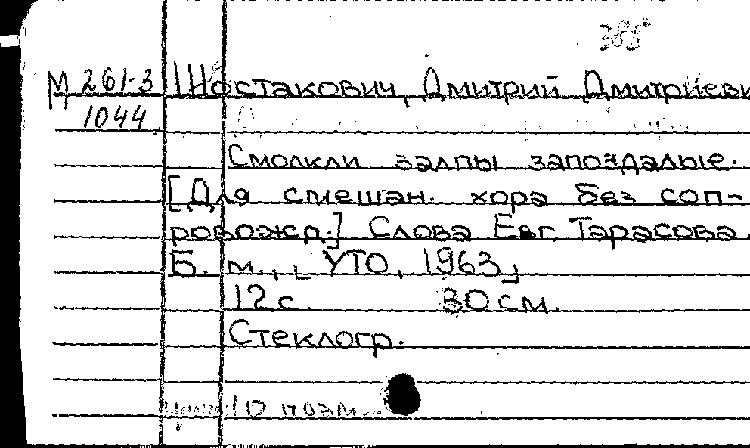 М 261-3 Шостакович, Дмитрий Дмитриеви
1044
Смолкли залпы запоздалые.
[Для смешан. хора без соп-
ровожд.] Слова Евг. Тарасова.
Б. м., УТО, 1963
12 с. 30 см.
Стеклогр.